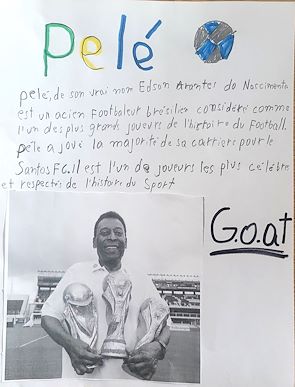 Pelé
Pelé, de son vrai nom Edson Arantes do Nascimento
est un acien Footbaleur brésilien considéré comme
l'un des plus grands joueurs de l'histoire du Football.
Pelé a joué la majorité de sa carriers pour le
Santos FC. il est l'un de joueurs les plus célèbre
et respectés de l'histoire du Sport
G.o.at